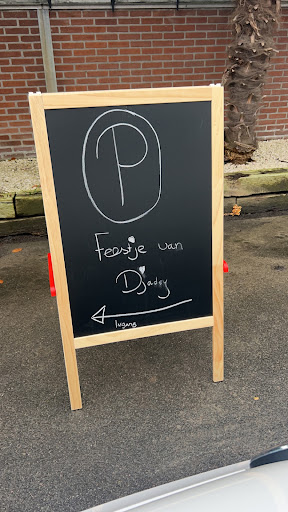 P
Feestje van
Djadey
Ingang